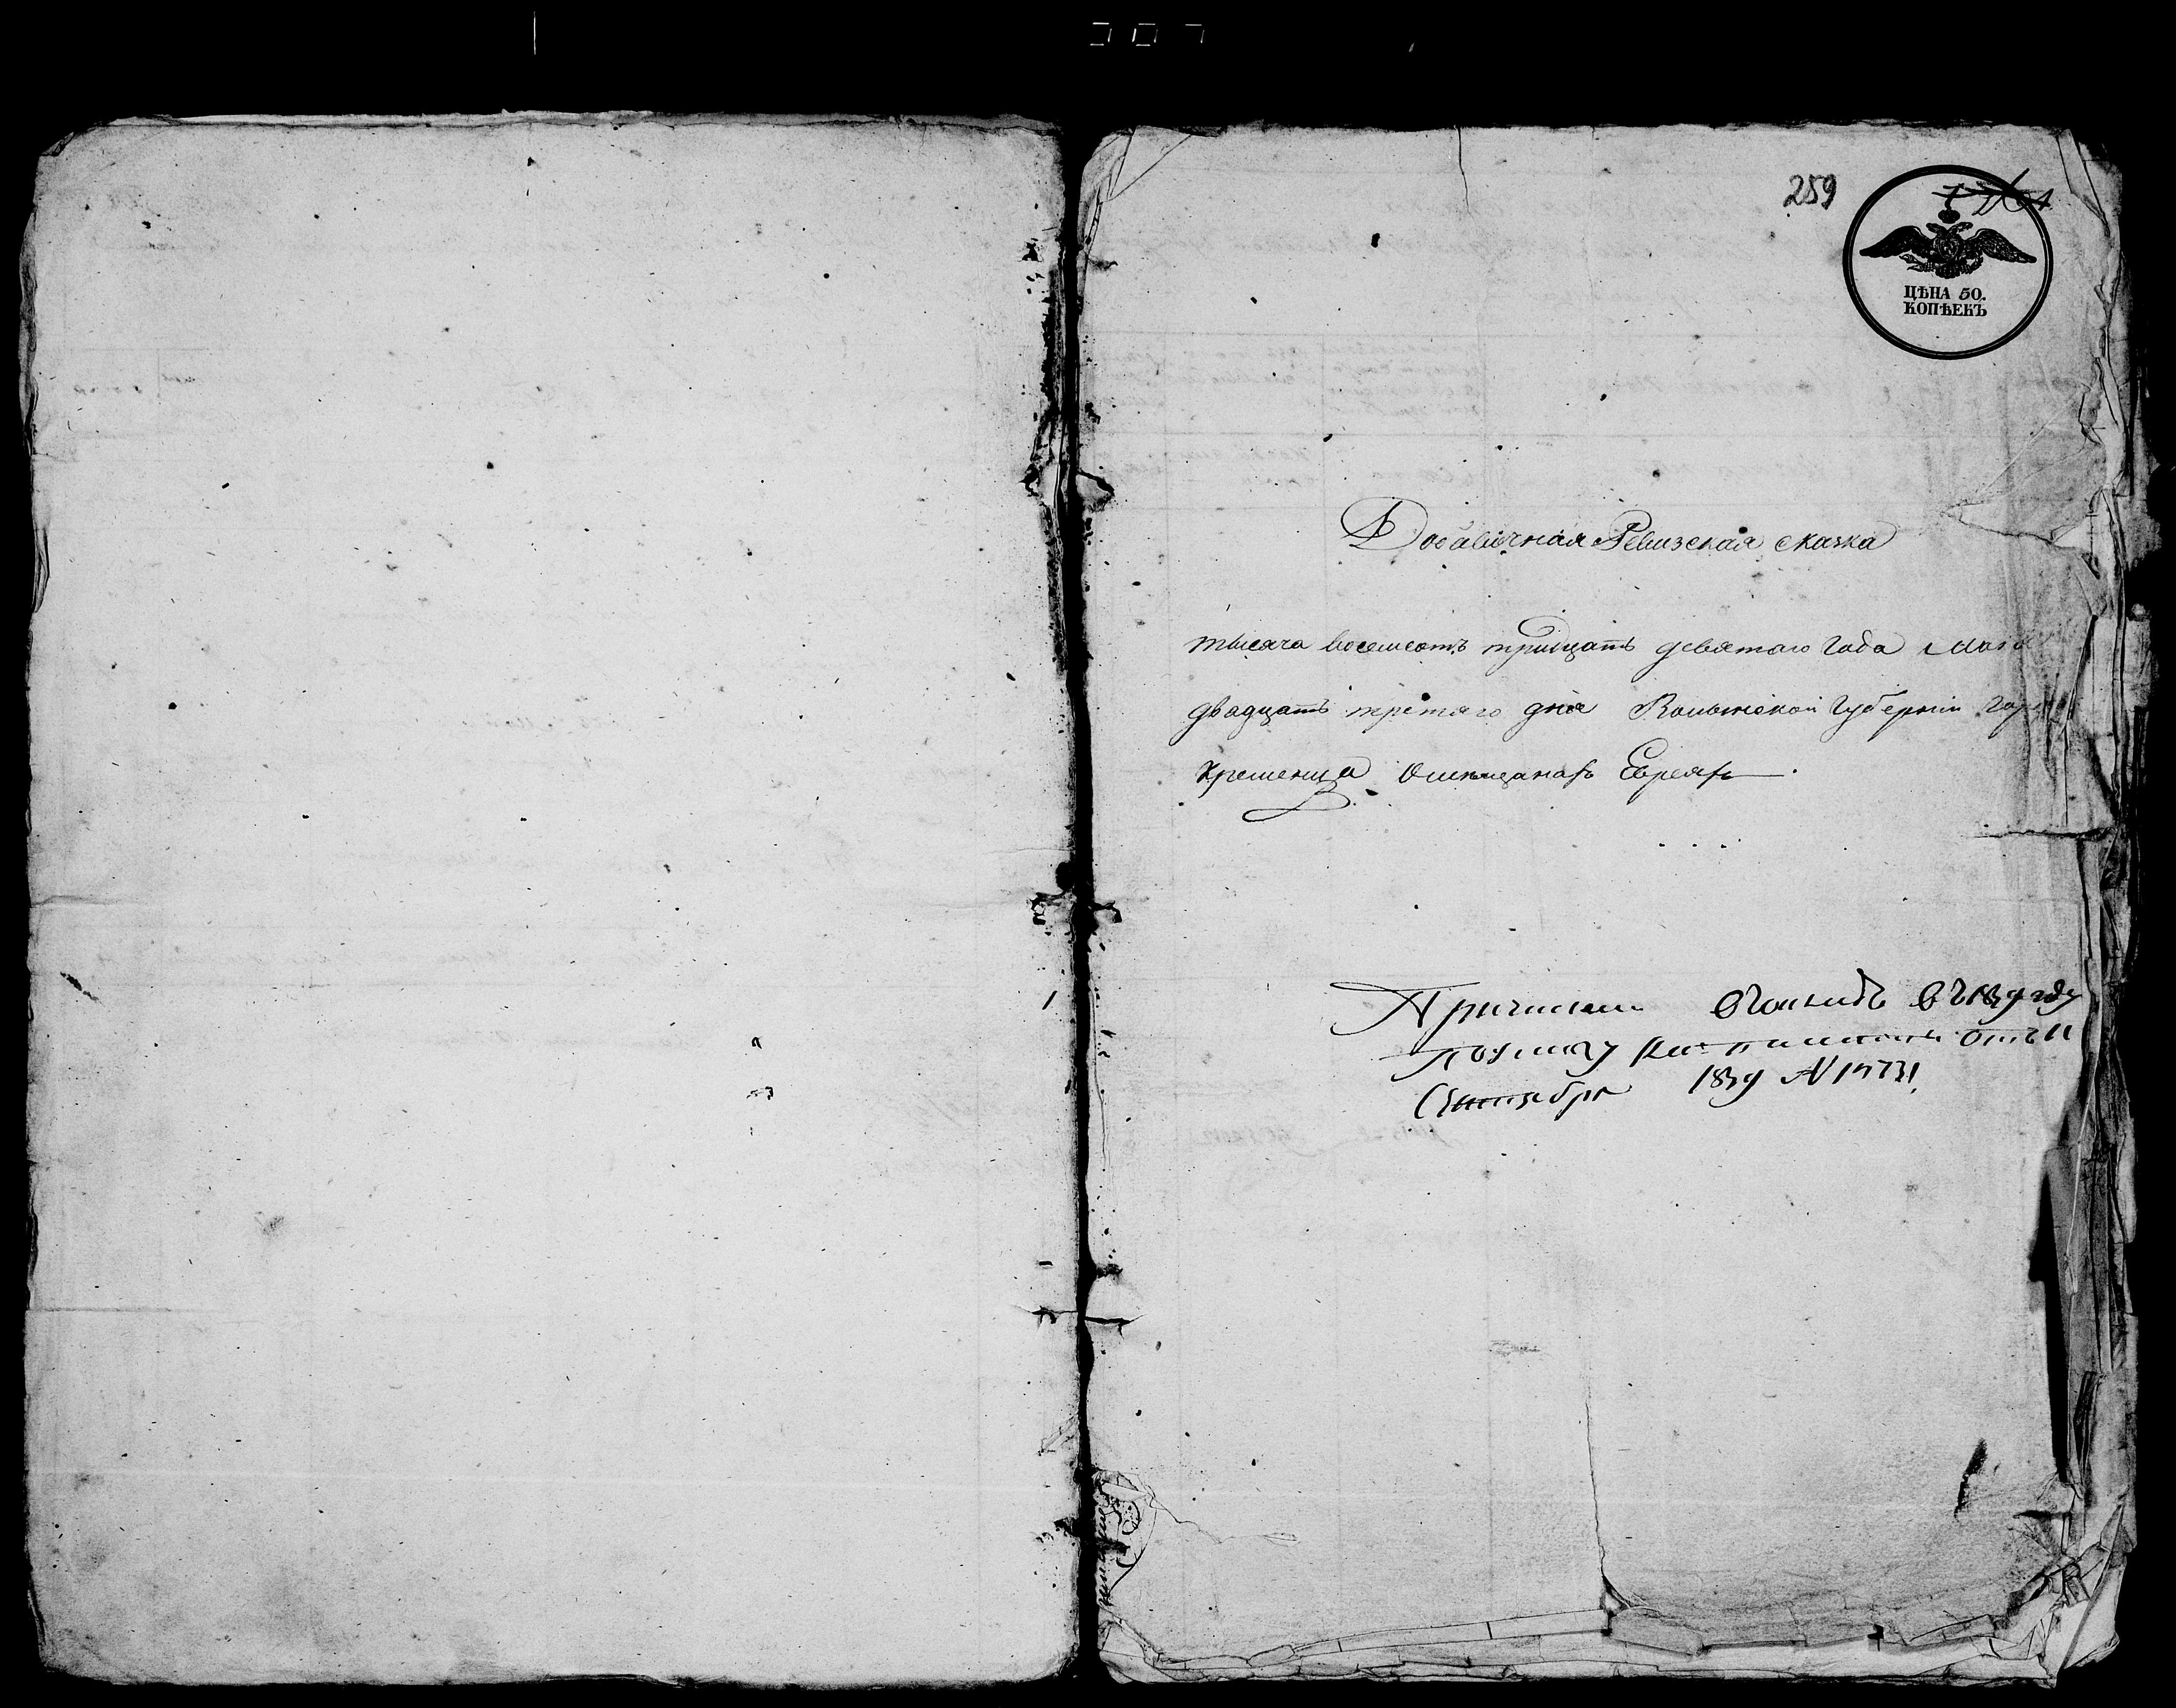 259
ЦѢНА 50.
КОПѢЕКЪ
Добавочная Ревизская сказка
тысяча восемсотъ тридцать девятого года Мая
двадцать третяго дня Волынской Губерніи Гор
Кременца Омещанахъ Евреяхъ
Причислены въ 1839 году
По указу отъ 11
Сентября 1839 №